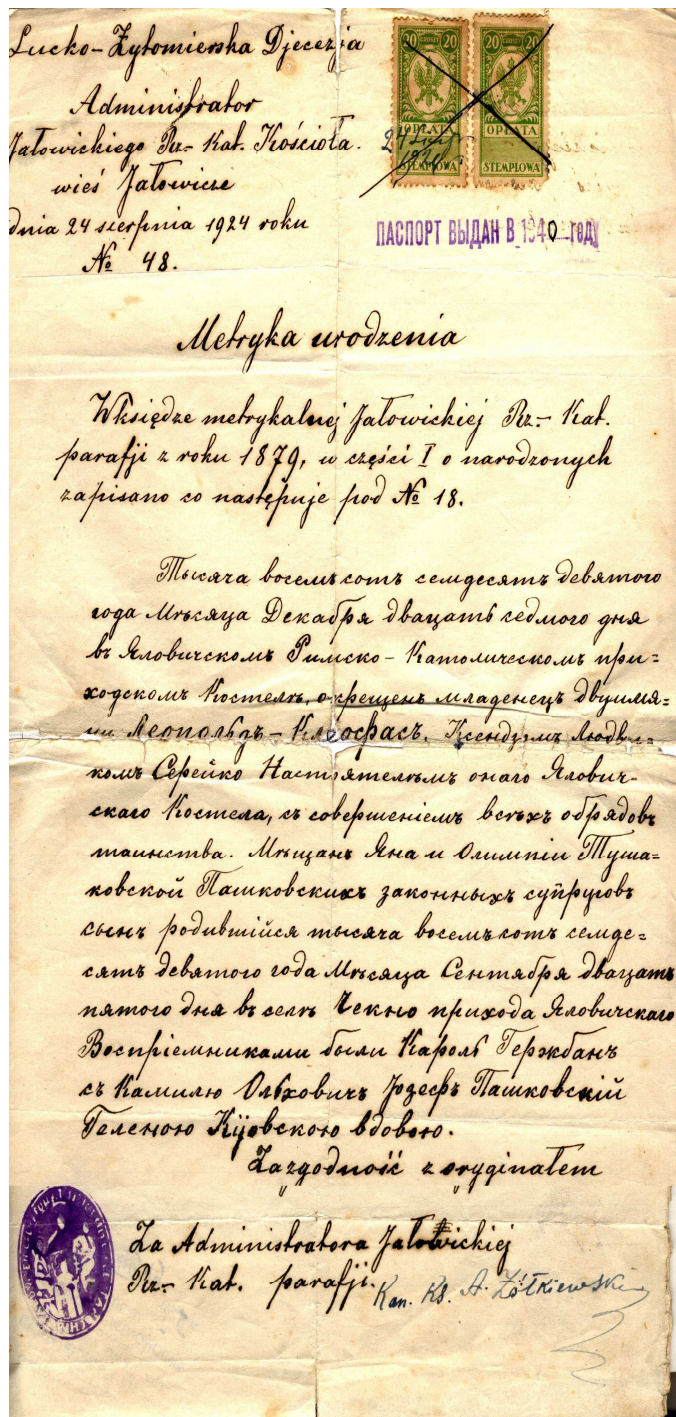 Łucko-Żytomierska Djecezja
Administrator
Jałowickiego Rz.-Kat. Kościoła.
wieś Jałowicze
dnia 24 sierpnia 1924 roku
№ 48.
20 GROSZY 20
20 GROSZY 20
OPŁATA
OPŁATA
24
STEMPLOWA
STEMPLOWA
ПАСПОРТ ВЫДАН В 1940 году
Metryka urodzenia
W księdze metrykalnej Jałowickiej Rz.-Kat.
parafji z roku 1879, w części I o narodzonych
zapisano co następuje pod № 18.
Тысяча восемъсотъ семдесятъ девятого
года Мѣсяца Декабря двацать седмого дня
въ Яловичскомъ Римско-Католическомъ при=
ходскомъ Костелѣ, окрещенъ младенецъ двуимя=
ни Леопольдъ-Клеофасъ. Ксендзомъ Людви=
комъ Серейко Настятелемъ онаго Ялович-
скаго Костела, съ совершеніемъ всѣхъ обрядовъ
таинства. Мѣщанъ Яна и Олимпіи Туша=
ковской Пашковскихъ законныхъ супруговъ
сынъ родившійся тысяча восемъсотъ семде=
сятъ девятого года Мѣсяца Сентября двацать
пятого дня въ селѣ Чекно прихода Яловичскаго
Воспріемниками были Кароль Гержбанъ
съ Камилю Ольховичъ Іозефъ Пашковскій
Геленою Кijовскою вдовою.
Za zgodność z oryginałem
Za Administratora Jałowickiej
Rz.-Kat. parafji. Kan. Ks. A. Żółkiewski